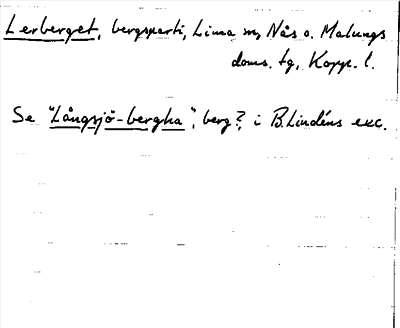 Lerberget, bergsparti, Lima sn, Nås o. Malungs
doms. tg, Kopp. l.
Se "Långsjö-bergka", berg?, i B. Lindéns exc.